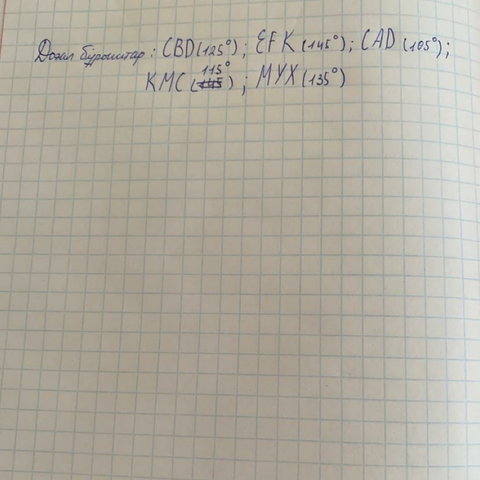 Доғал бұрыштар: CBD (125°); EFK (145°); CAD (105°);
KMC (115°); MYX (135°)